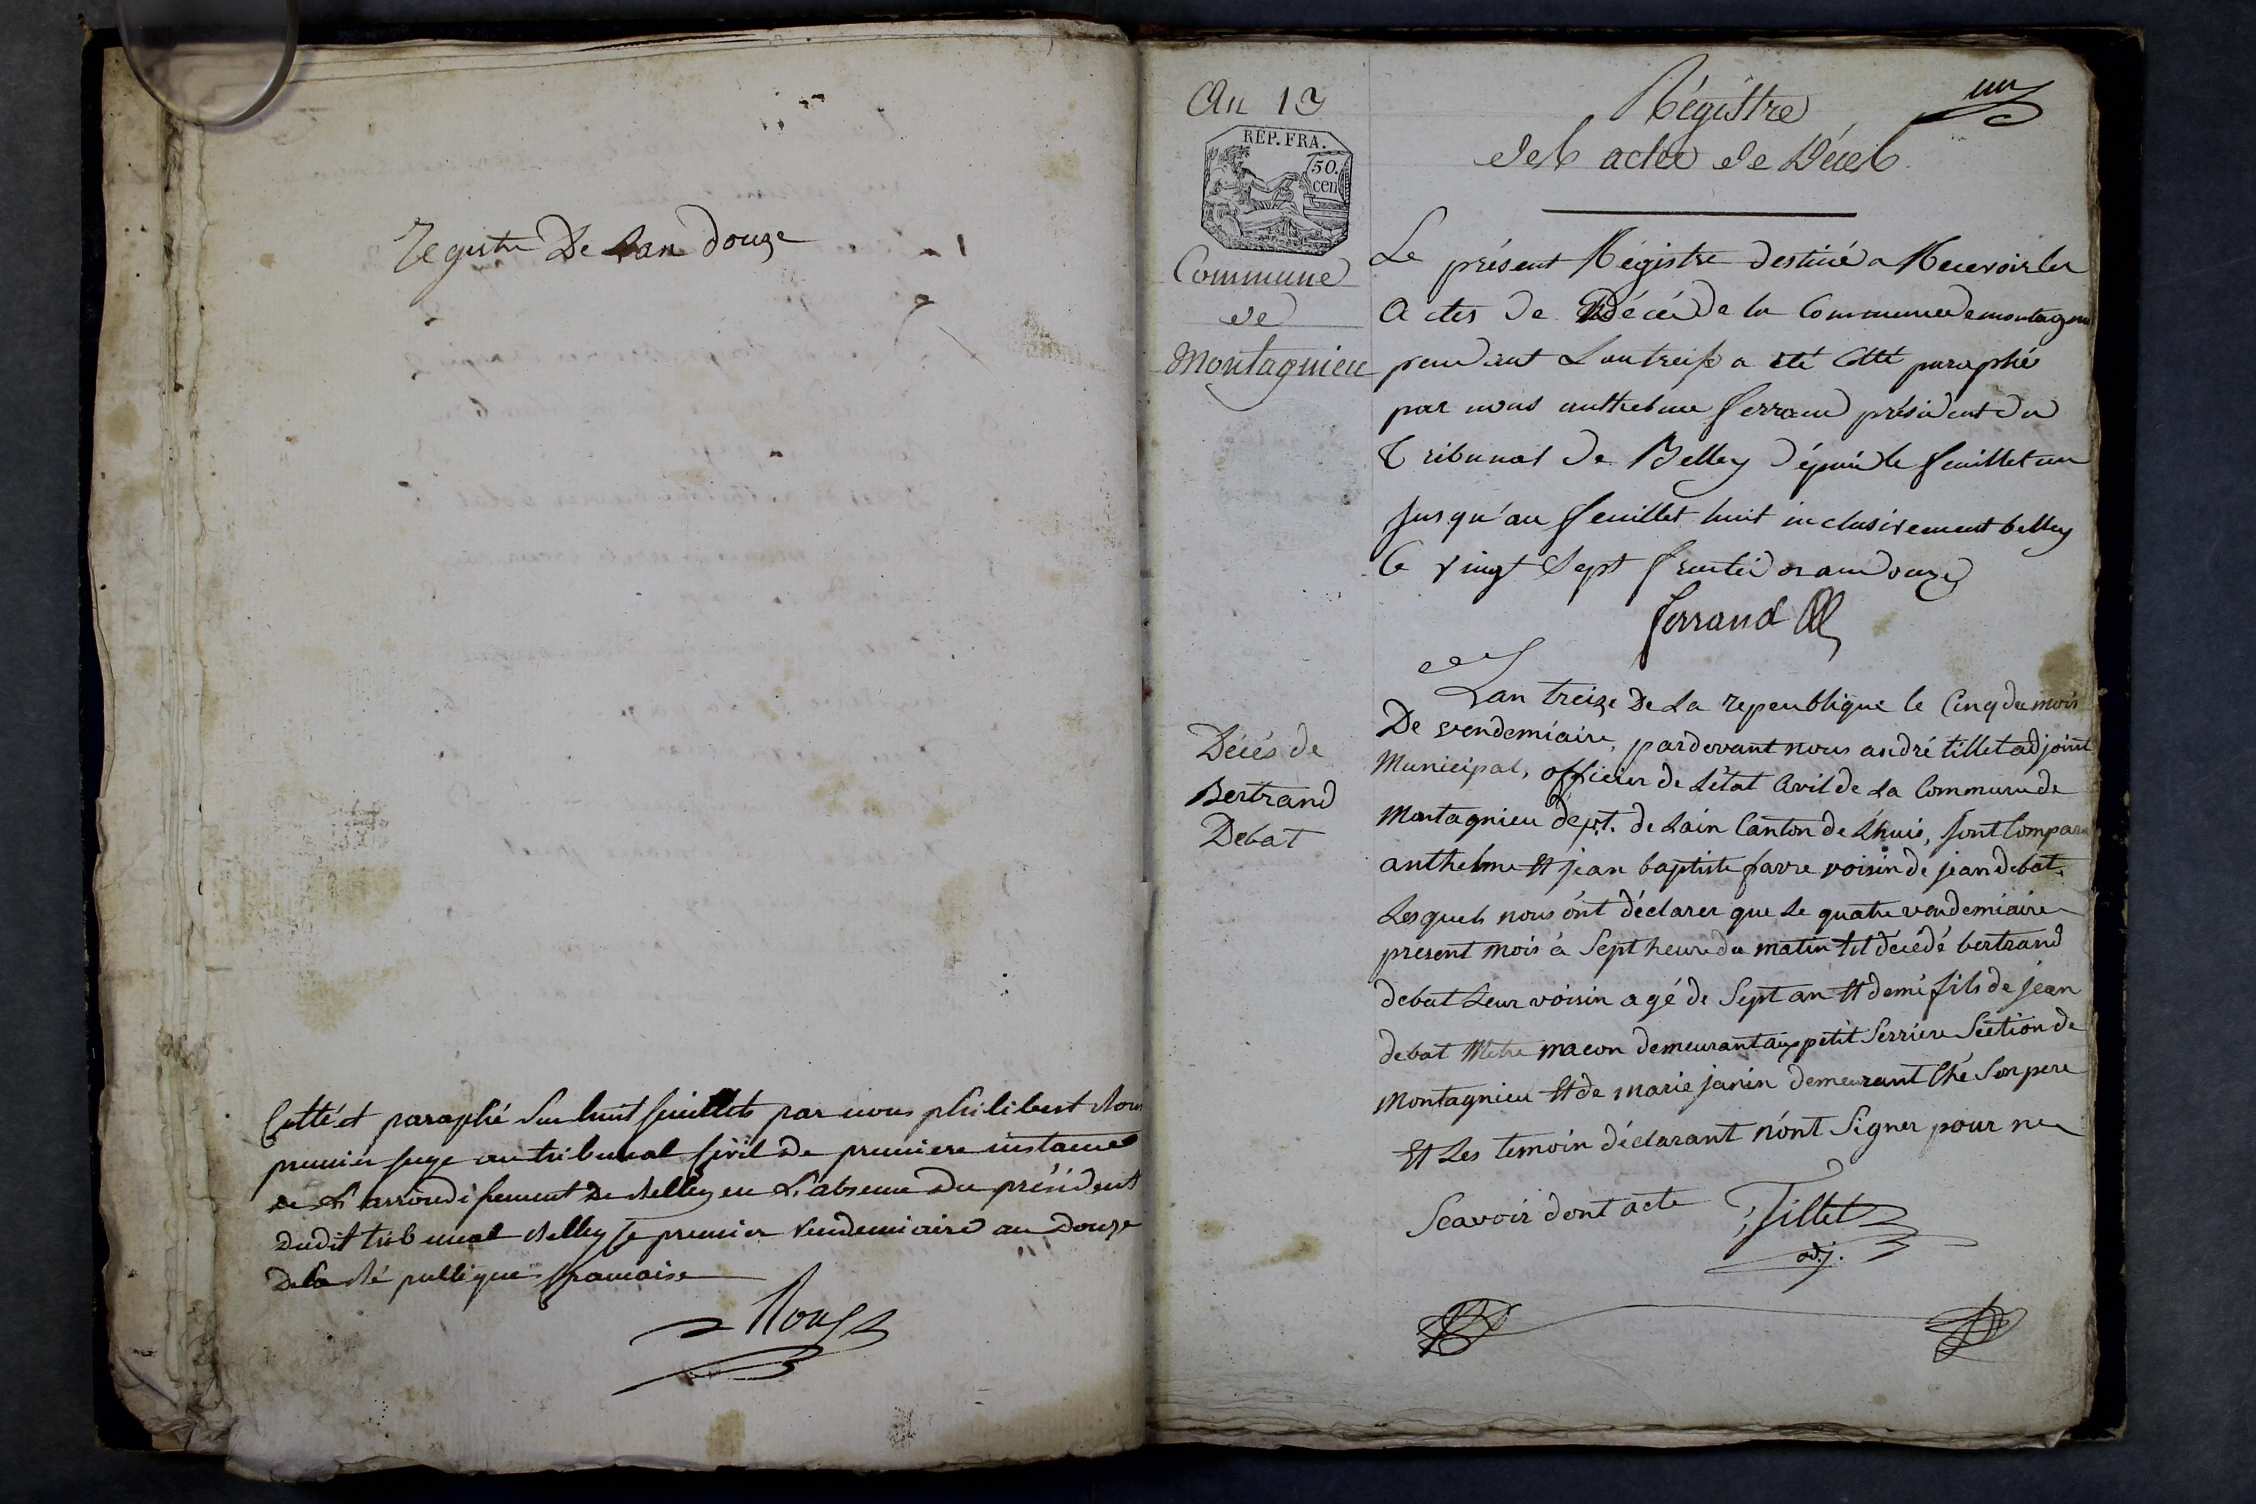 registre De Lan douze
Cotté et paraphé Sur huit feuillets par nous philibert
premier juge au tribunal Civil de premiere instance
de L'arrondissement de Belley en L'absence Du président
dudit tribunal Belley le premier Vendemiaire an Douze
De la République francaise
An 13
REP. FRA.
50.
cen
Commune
de
Montagnieu
un
Régistre
des actes de Décès
Le présent Régistre destiné a Recevoir les
Actes de Décés de la Commune de montagnieu
pendant Lan treise a été Cotté paraphé
par nous anthelme ferrand président du
Tribunal de Belley dépuis le feuillet un
Jusqu'au feuillet huit inclusivement belley
le vingt Sept fructidor an douze
ferrand
Décés de
Bertrand
Debat
Lan treize De La republique le Cinq du mois
De vendemiaire, pardevant nous andré tillet adjoint
Municipal, officier de L'état Civil de La Commune de
Montagnieu dept. de Lain Canton de Lhuis, sont Compar
anthelme Et jean baptiste favre voisin de jean debat.
Lesquels nous ónt déclarer que Le quatre vendemiaire
present mois à Sept heure du matin Est décédé bertrand
debat Leur voisin agé de Sept an Et demi fils de jean
debat Metre macon demeurant au petit Serriere Section de
Montagnieu Et de marie janin demeurant Ché Son pere
Et Les temoin déclarant n'ónt Signer pour ne
Scavoir dont acte Tillet
adj.